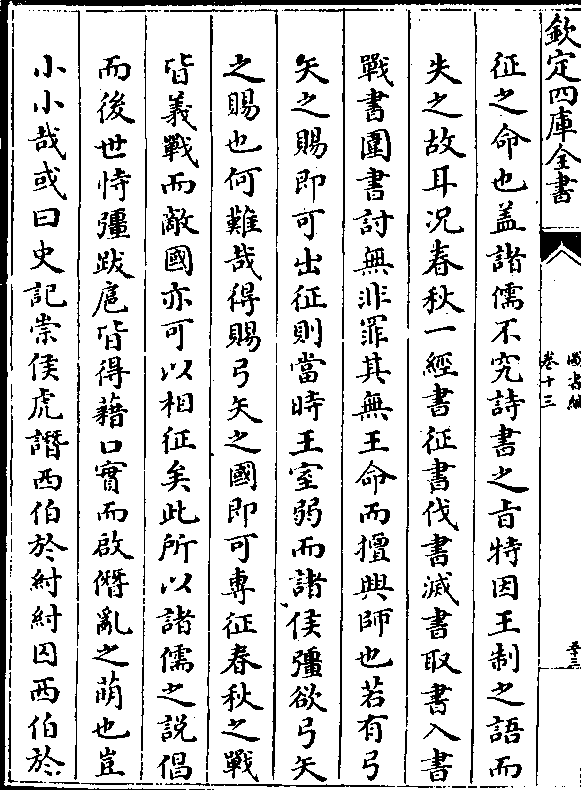 欽定四庫全書
卷十三
征之命也蓋諸儒不究詩書之旨特因王制之語而
失之故耳况春秋一經書征書伐書滅書取書入書
戰書圍書討無非罪其無王命而擅興師也若有弓
矢之賜即可出征則當時王室弱而諸侯彊欲弓矢
之賜也何難哉得賜弓矢之國即可專征春秋之戰
皆義戰而敵國亦可以相征矣此所以諸儒之説倡
而後世恃彊跋扈皆得藉口實而啟僭亂之萌也豈
小小哉或曰史記崇侯虎譖西伯於紂紂囚西伯於